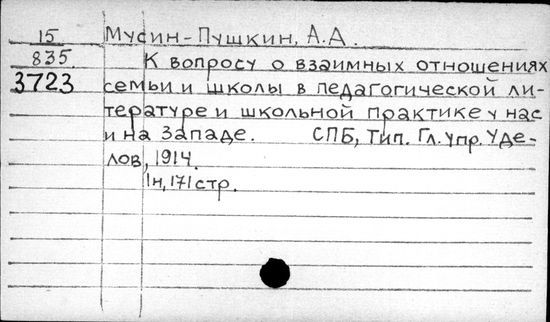 15 Мусин-Пушкин, А.А.
835. К вопросу о взаимных отношениях
3723 семьи и школы в педагогической ли-
тературе и школьной практике у нас
и на Западе. СПБ, Тип. Гл. упр. Уде-
лов, 1914.
1н, 171 стр.